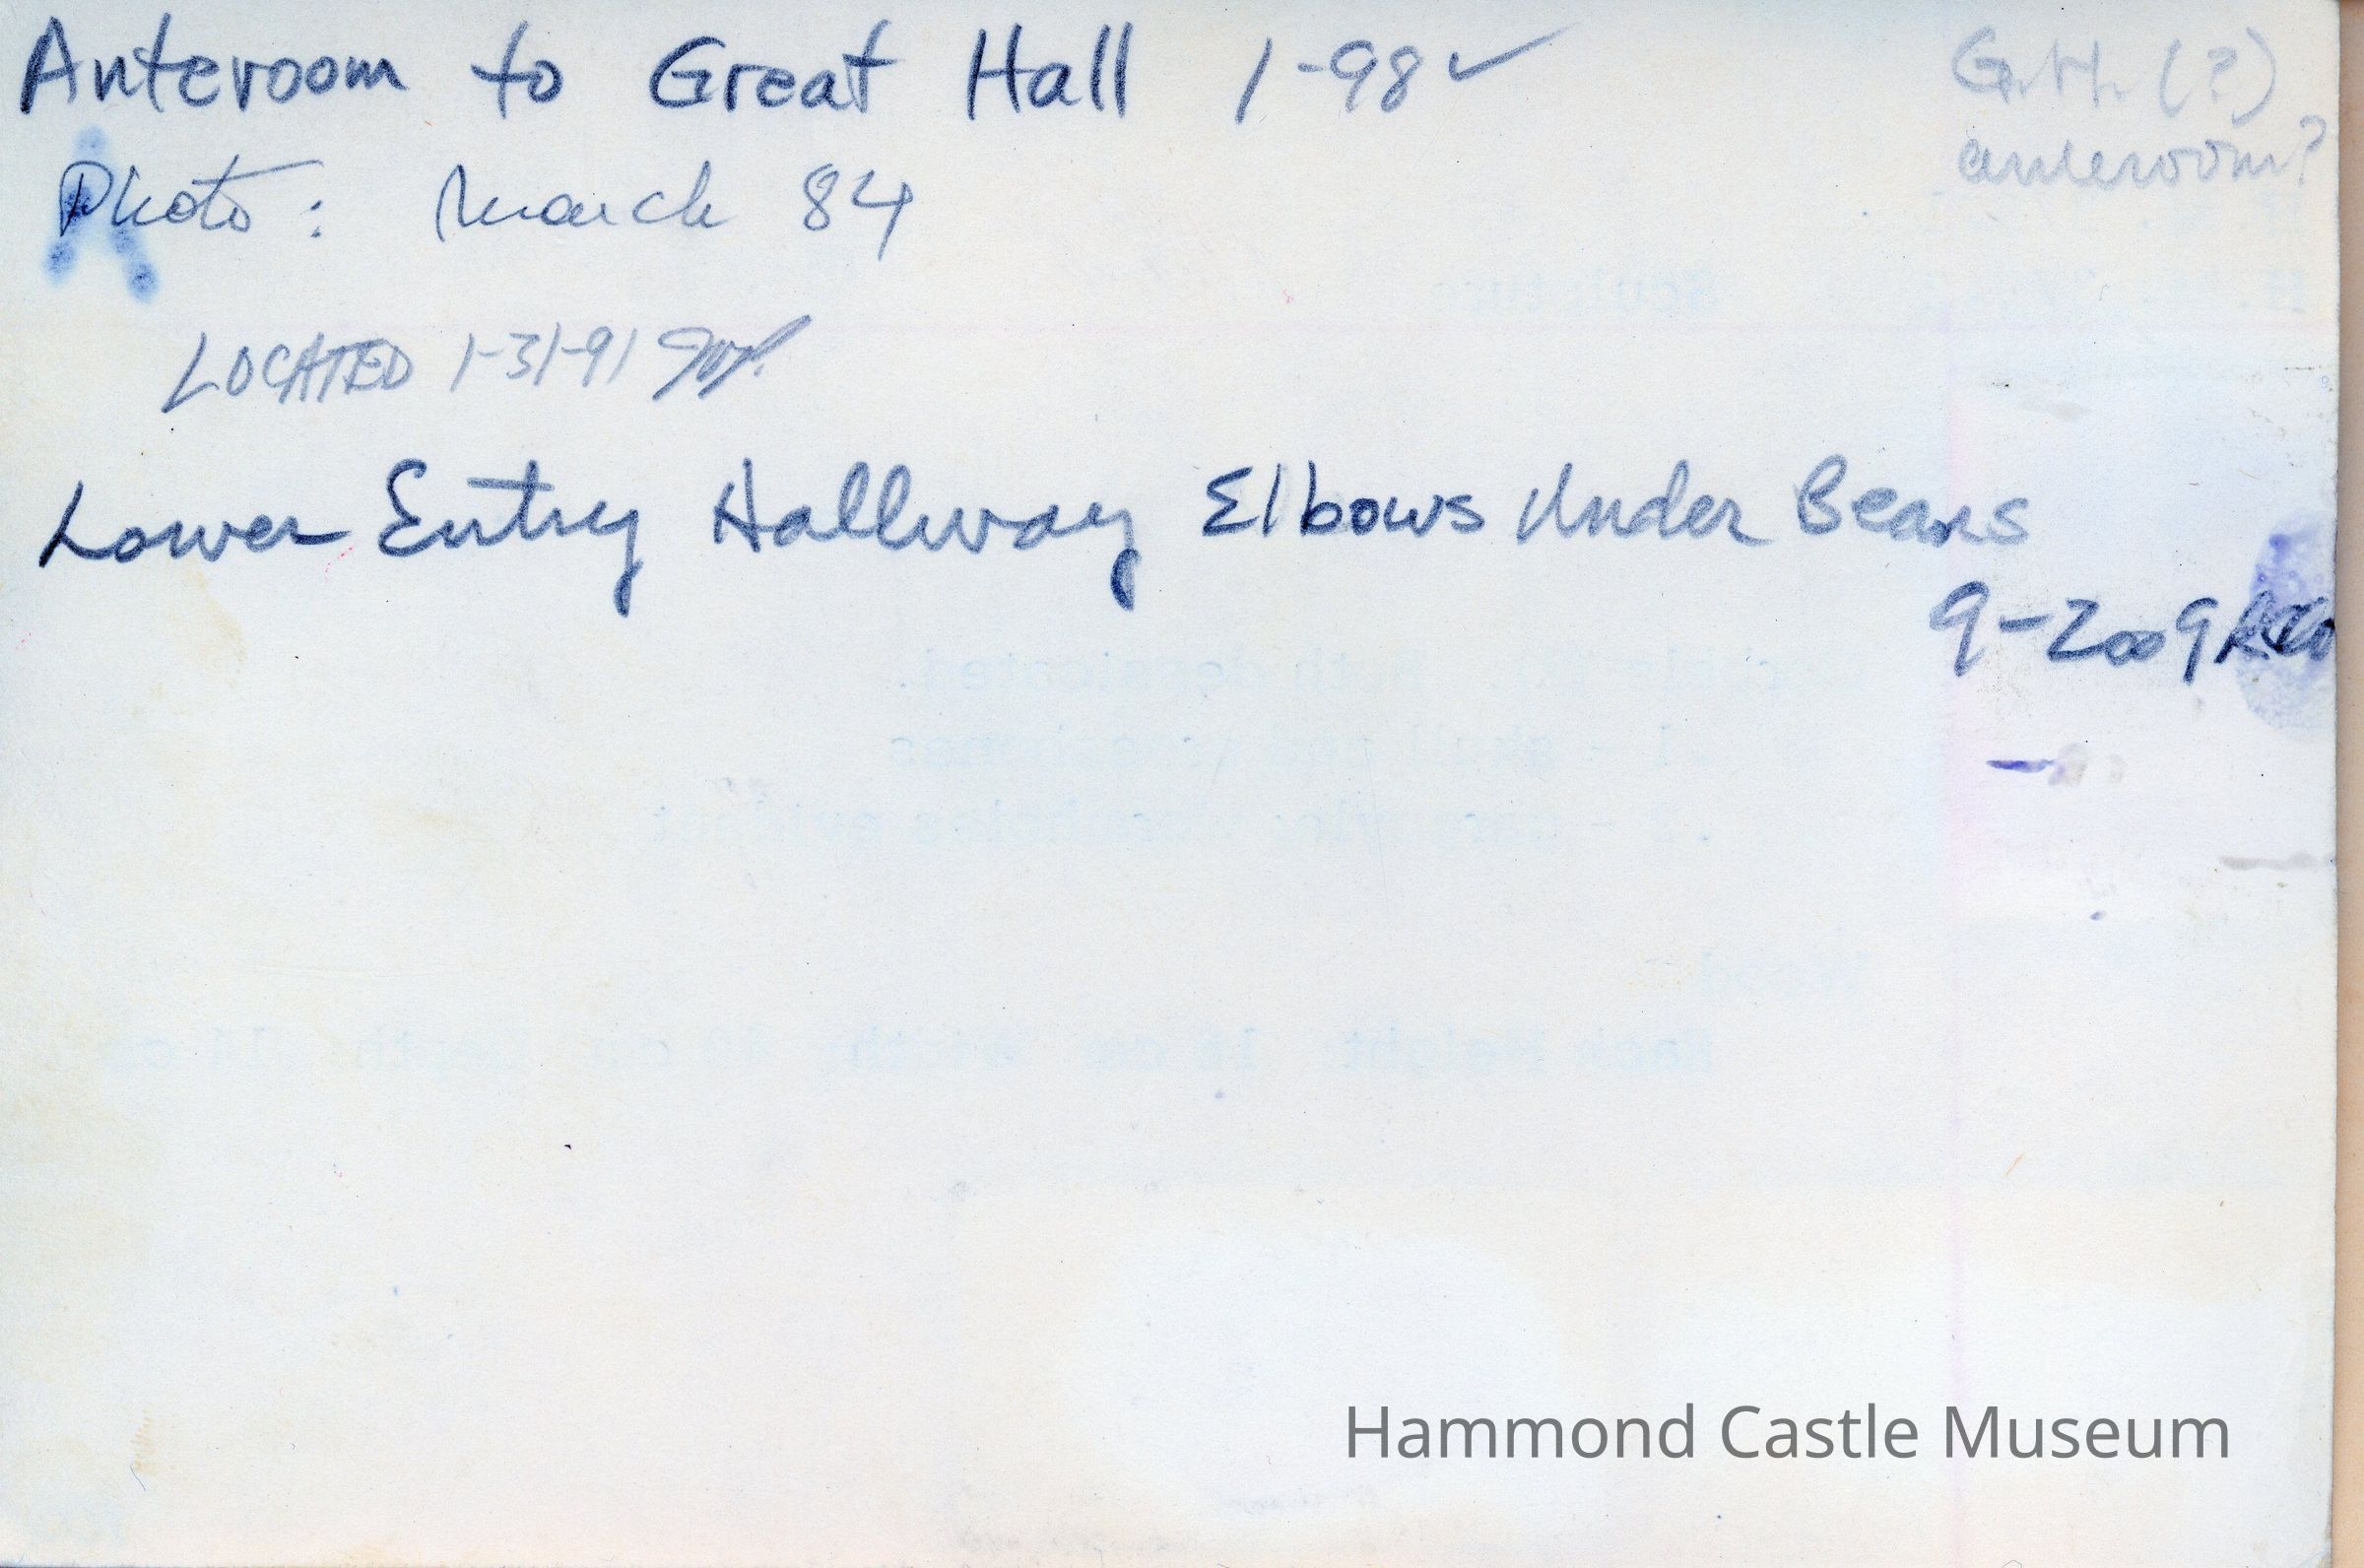 Anteroom to Great Hall 1-98 ✓
G.H. (?)
anteroom?
Photo: March 84
LOCATED 1-31-91
Lower Entry Hallway Elbows Under Beams
9-2009
Hammond Castle Museum